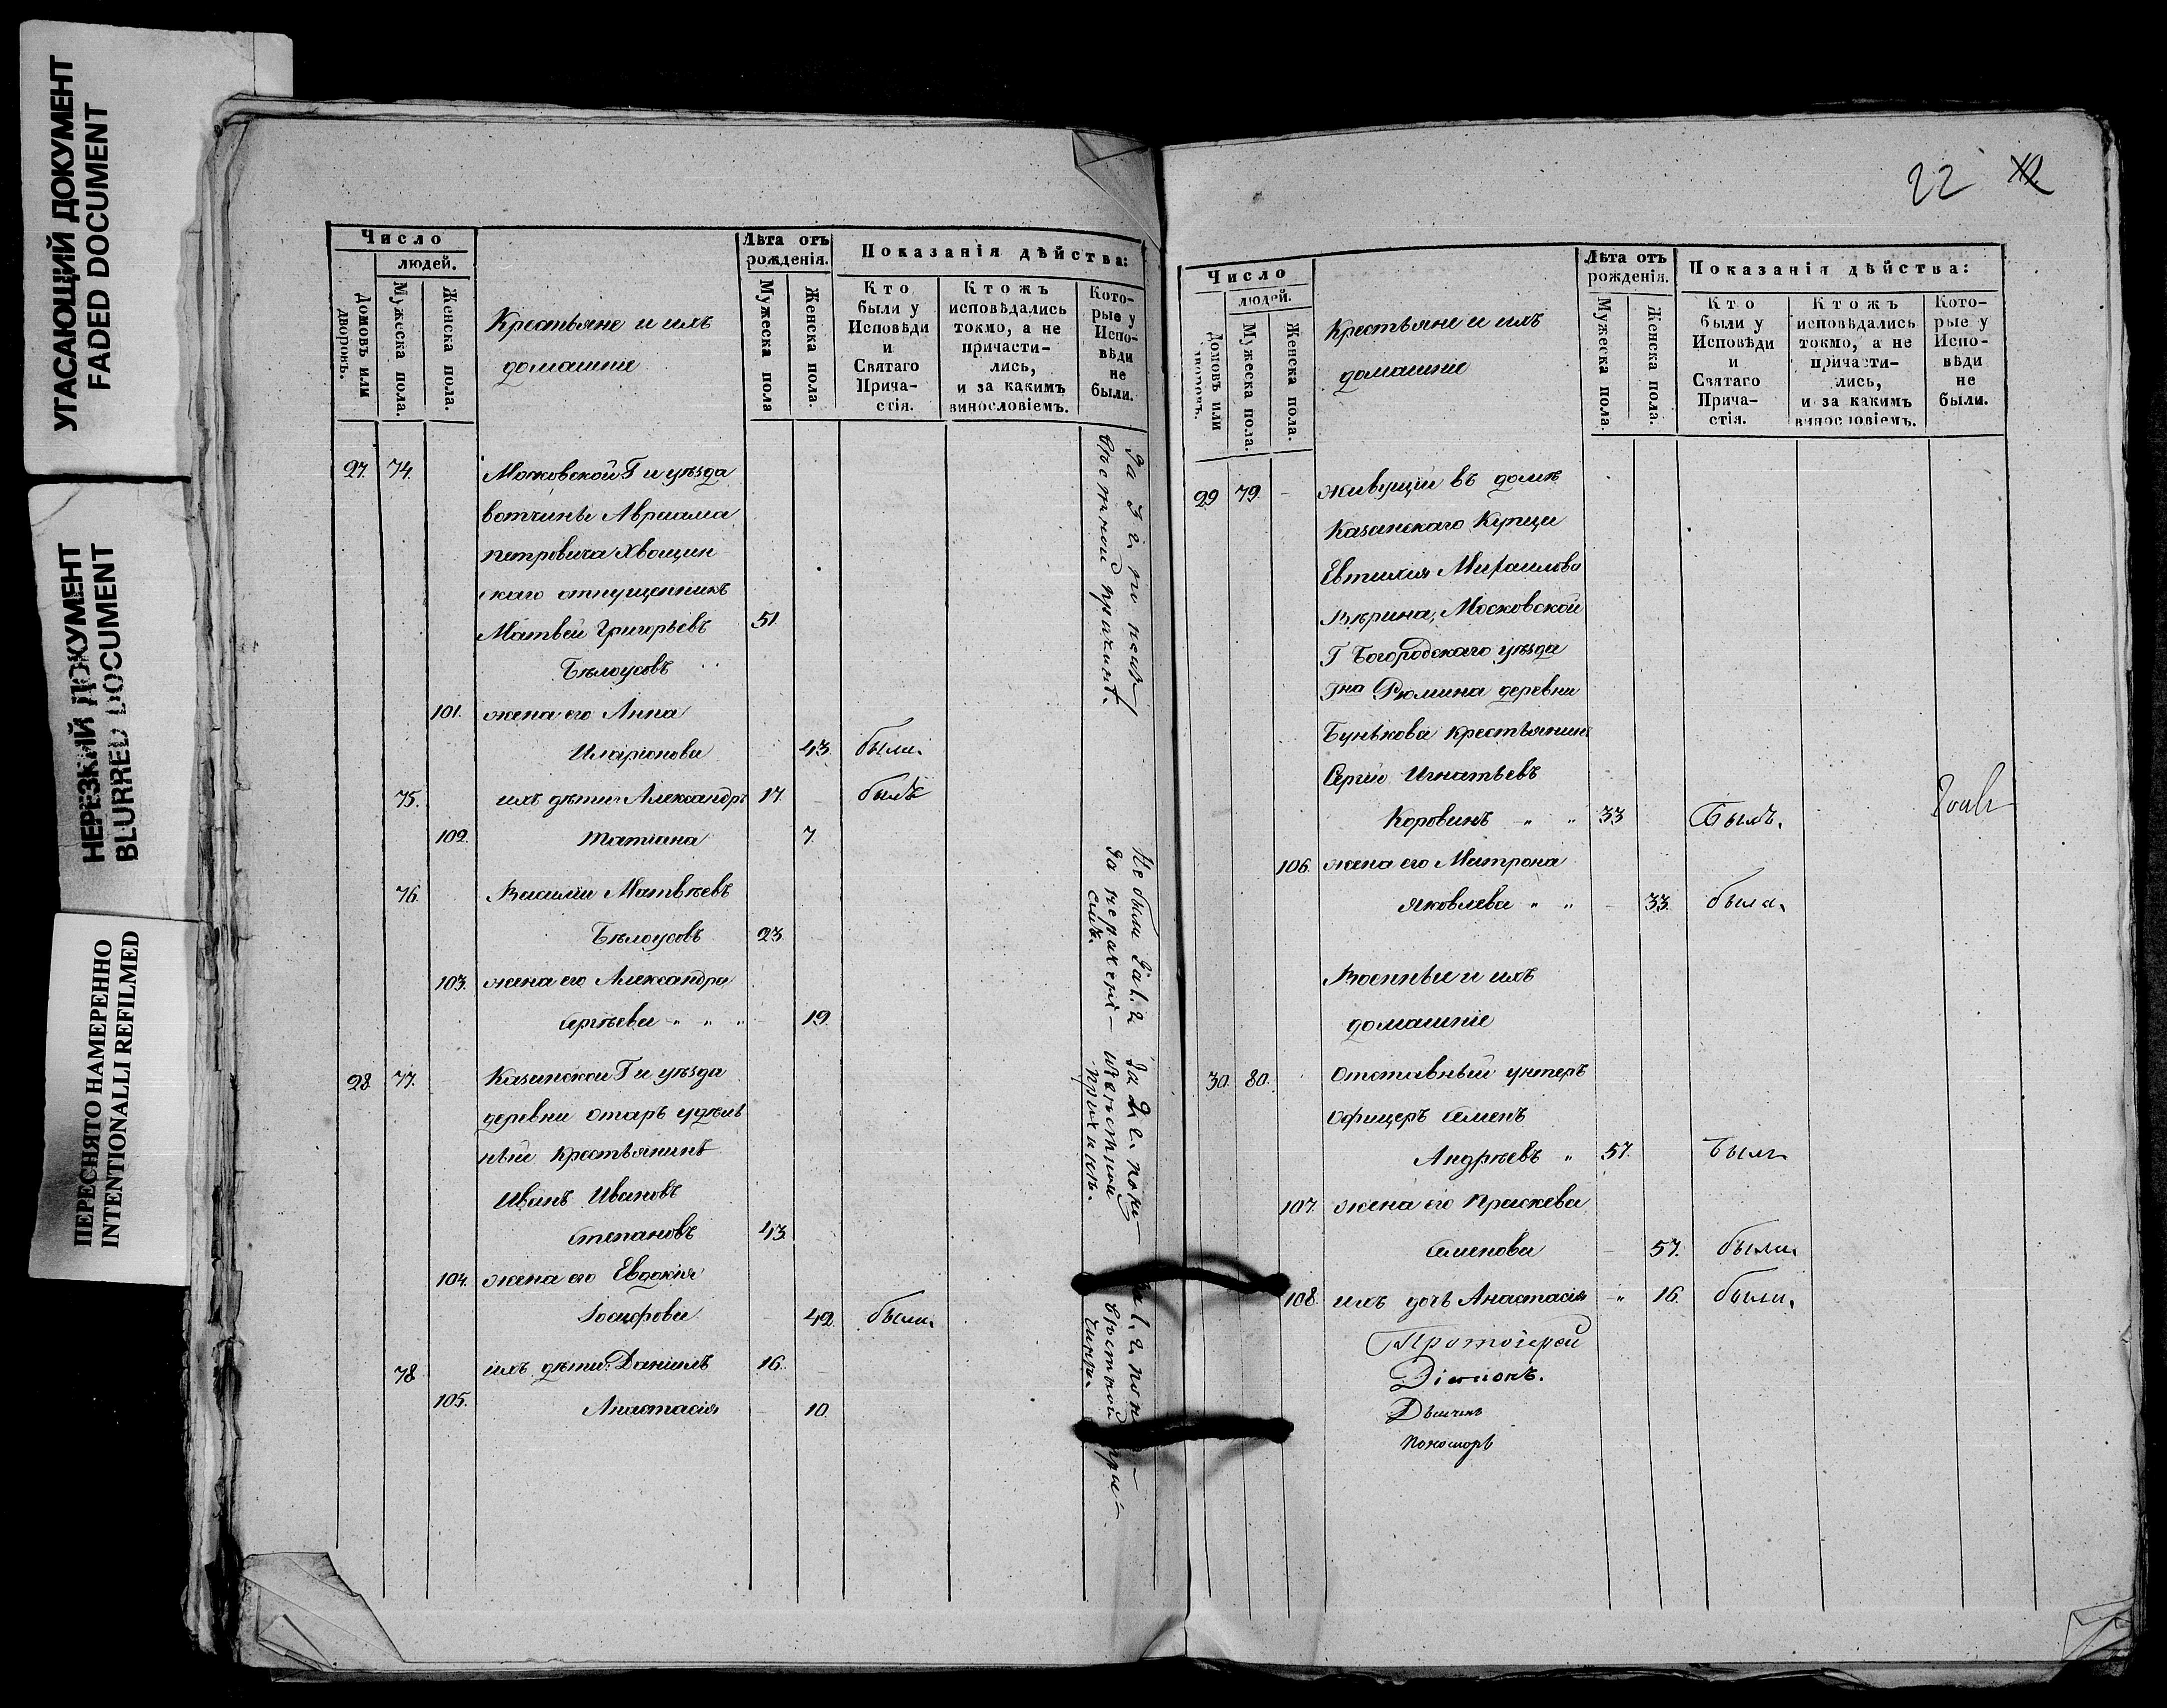 УГАСАЮЩИЙ ДОКУМЕНТ
FADED DOCUMENT
НЕРЕЗКИЙ ДОКУМЕНТ
BLURRED DOCUMENT
ПЕРЕСНЯТО НАМЕРЕННО
INTENTIONALLI REFILMED
Число
людей.
Домовъ или дворовъ.
Мужеска пола.
Женска пола.
Крестьяне и ихъ
домашніе
Лѣта отъ
рожденія.
Мужеска пола
Женска пола.
Показанія дѣйства:
Кто
были у
Исповѣди
и
Святаго
Прича-
стія.
Ктожъ
исповѣдались
токмо, а не
причасти-
лись,
и за какимъ
винословіемъ.
Кото-
рые у
Испо-
вѣди
не
были.
27. 74. Московской Г и уѣзда
вотчины Авраама
Петровича Хвощин
скаго отпущенникъ
Матвей Григорьевъ 51.
Бѣлоусовъ
101. жена его Анна
Иларіонова 43. была.
75. ихъ дѣти Александръ 17. былъ
102. Татіана 7.
76. Василій Матвѣевъ
Бѣлоусовъ 23.
103. жена его Александра
Сергѣева " " " 19.
28. 77. Казанской Г и уѣзда
деревни Отаръ удѣль
ный крестьянинъ
Иванъ Ивановъ
Степановъ 43.
104. жена его Евдокія
Іосифова 42. была.
78. ихъ дѣти: Даніилъ 16.
105. Анастасія 10.
22
Число
людей.
Домовъ или дворовъ.
Мужеска пола.
Женска пола.
Крестьяне и ихъ
домашніе
Лѣта отъ
рожденія.
Мужеска пола.
Женска пола.
Показанія дѣйства:
Кто
были у
Исповѣди
и
Святаго
Прича-
стія.
Ктожъ
исповѣдались
токмо, а не
причасти-
лись,
и за какимъ
винословіемъ.
Кото-
рые у
Испо-
вѣди
не
были.
29 79. живущій въ домѣ
Казанскаго Купца
Евтихія Михаилова
Московской
Г Богородскаго уѣзда
Гна Рюмина деревни
Бунькова крестьянинъ
Сергій Игнатьевъ
Коровинъ " " 33 Былъ.
106. жена его Матрона
Яковлева " " 33. была.
Военные и ихъ
домашніе
30. 80. Отставный унтеръ
офицеръ Семенъ
Андреевъ " 57. Былъ
107. жена его Праскева
Семенова 57. была.
108. ихъ дочь Анастасія " 16. была.
Протоіерей
Діаконъ.
Дьячекъ
Пономорь